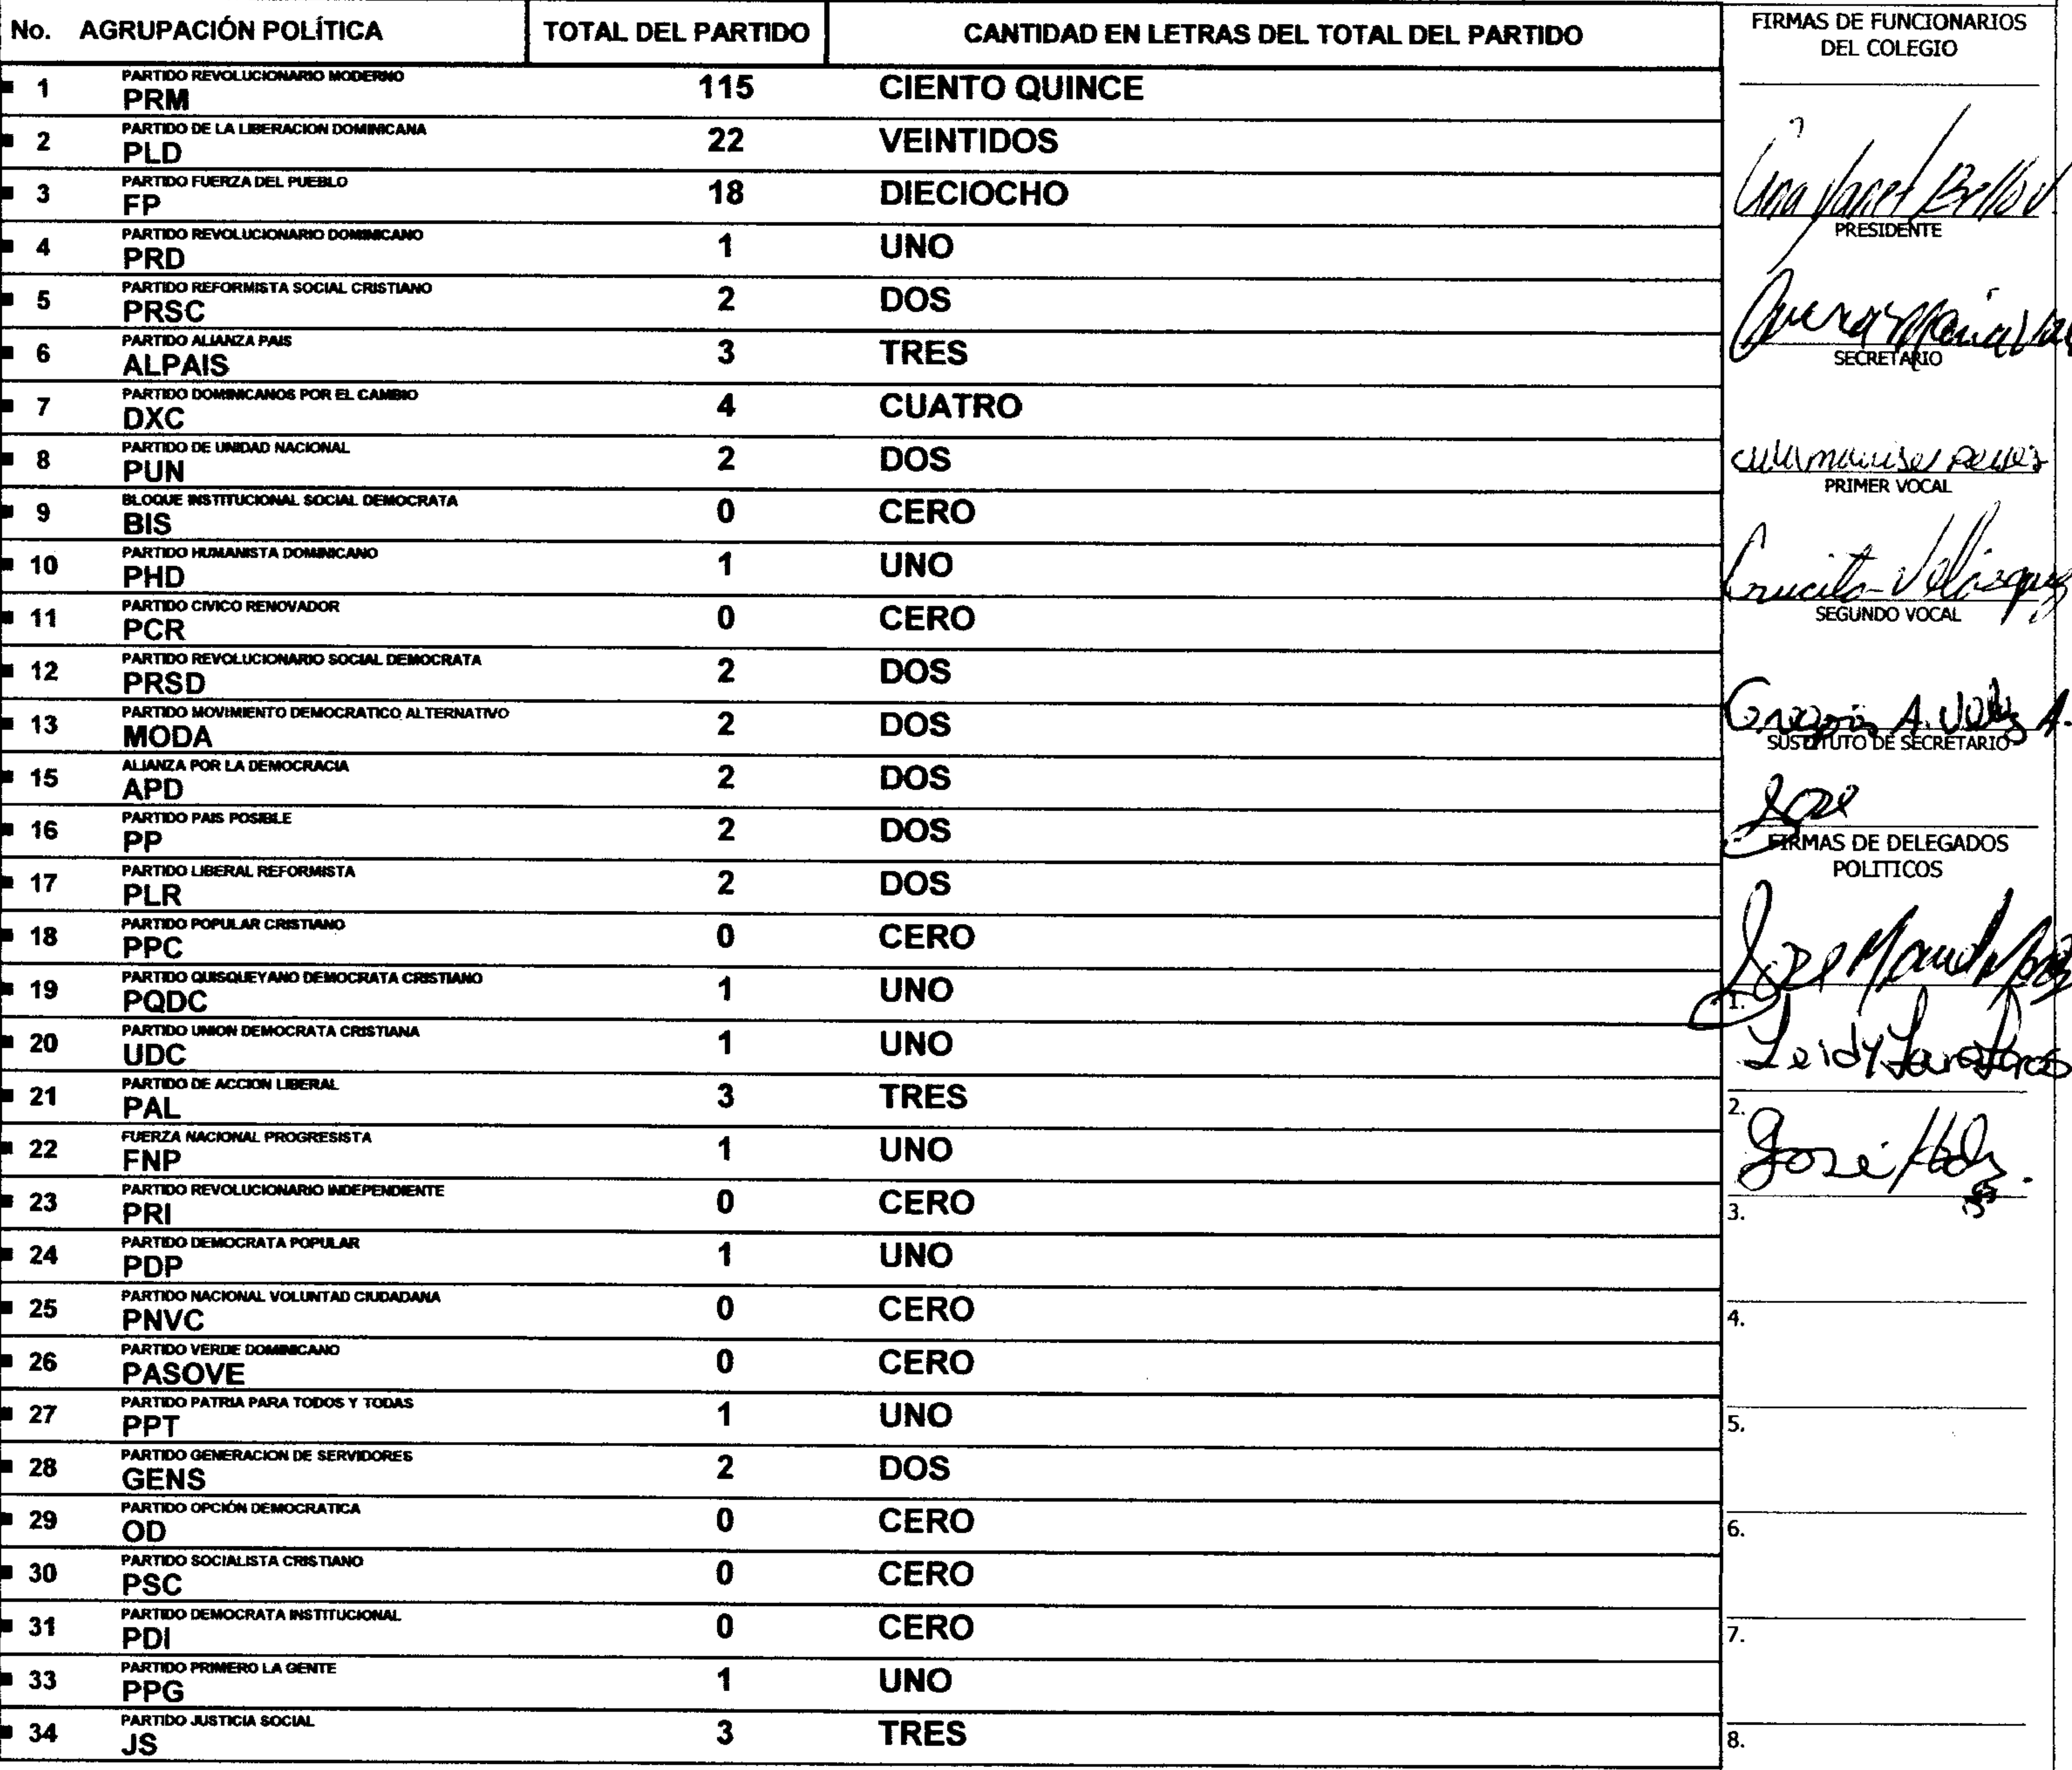 No. AGRUPACIÓN POLÍTICA TOTAL DEL PARTIDO CANTIDAD EN LETRAS DEL TOTAL DEL PARTIDO
1 PARTIDO REVOLUCIONARIO MODERNO
PRM 115 CIENTO QUINCE
2 PARTIDO DE LA LIBERACION DOMINICANA
PLD 22 VEINTIDOS
3 PARTIDO FUERZA DEL PUEBLO
FP 18 DIECIOCHO
4 PARTIDO REVOLUCIONARIO DOMINICANO
PRD 1 UNO
5 PARTIDO REFORMISTA SOCIAL CRISTIANO
PRSC 2 DOS
6 PARTIDO ALIANZA PAIS
ALPAIS 3 TRES
7 PARTIDO DOMINICANOS POR EL CAMBIO
DXC 4 CUATRO
8 PARTIDO DE UNIDAD NACIONAL
PUN 2 DOS
9 BLOQUE INSTITUCIONAL SOCIAL DEMOCRATA
BIS 0 CERO
10 PARTIDO HUMANISTA DOMINICANO
PHD 1 UNO
11 PARTIDO CIVICO RENOVADOR
PCR 0 CERO
12 PARTIDO REVOLUCIONARIO SOCIAL DEMOCRATA
PRSD 2 DOS
13 PARTIDO MOVIMIENTO DEMOCRATICO ALTERNATIVO
MODA 2 DOS
15 ALIANZA POR LA DEMOCRACIA
APD 2 DOS
16 PARTIDO PAIS POSIBLE
PP 2 DOS
17 PARTIDO LIBERAL REFORMISTA
PLR 2 DOS
18 PARTIDO POPULAR CRISTIANO
PPC 0 CERO
19 PARTIDO QUISQUEYANO DEMOCRATA CRISTIANO
PQDC 1 UNO
20 PARTIDO UNION DEMOCRATA CRISTIANA
UDC 1 UNO
21 PARTIDO DE ACCION LIBERAL
PAL 3 TRES
22 FUERZA NACIONAL PROGRESISTA
FNP 1 UNO
23 PARTIDO REVOLUCIONARIO INDEPENDIENTE
PRI 0 CERO
24 PARTIDO DEMOCRATA POPULAR
PDP 1 UNO
25 PARTIDO NACIONAL VOLUNTAD CIUDADANA
PNVC 0 CERO
26 PARTIDO VERDE DOMINICANO
PASOVE 0 CERO
27 PARTIDO PATRIA PARA TODOS Y TODAS
PPT 1 UNO
28 PARTIDO GENERACION DE SERVIDORES
GENS 2 DOS
29 PARTIDO OPCIÓN DEMOCRATICA
OD 0 CERO
30 PARTIDO SOCIALISTA CRISTIANO
PSC 0 CERO
31 PARTIDO DEMOCRATA INSTITUCIONAL
PDI 0 CERO
33 PARTIDO PRIMERO LA GENTE
PPG 1 UNO
34 PARTIDO JUSTICIA SOCIAL
JS 3 TRES
FIRMAS DE FUNCIONARIOS
DEL COLEGIO
PRESIDENTE
SECRETARIO
PRIMER VOCAL
SEGUNDO VOCAL
A. A.
SUSTITUTO DE SECRETARIO
Jose
FIRMAS DE DELEGADOS
POLITICOS
1.
Leidy
2.
José
3.
4.
5.
6.
7.
8.